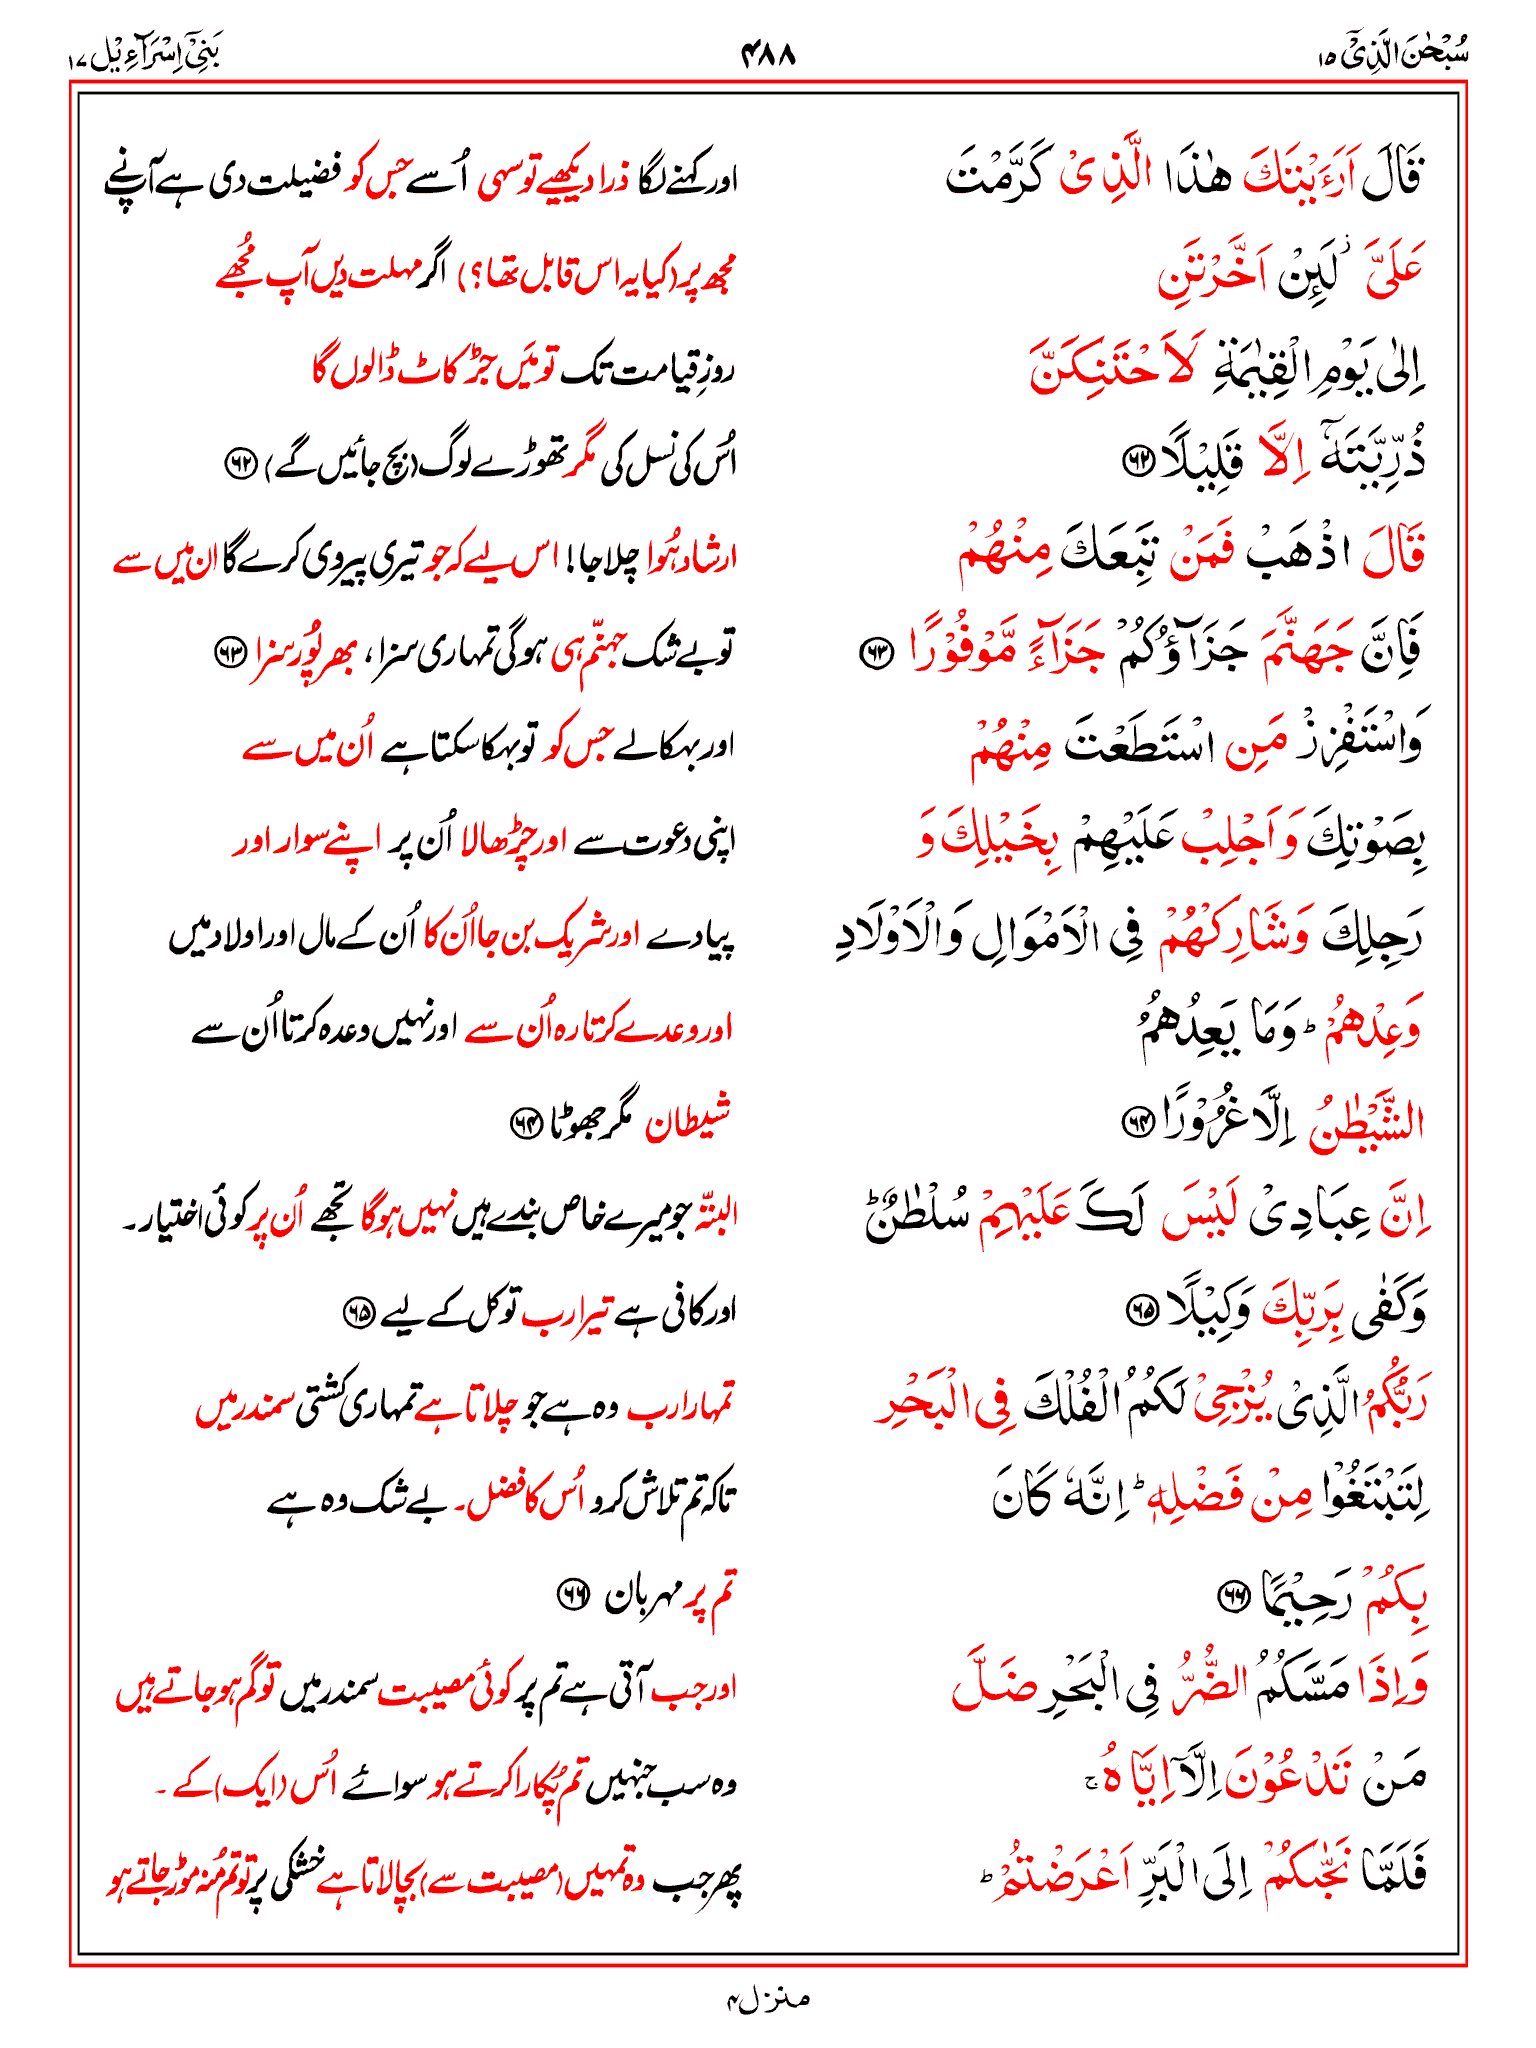 سُبْحٰنَ الَّذِیْۤ ۱۵
۴۸۸
بَنِیْۤ اِسْرَآءِیْل ۱۷
قَالَ اَرَءَیْتَكَ هٰذَا الَّذِیْ كَرَّمْتَ
اور کہنے لگا ذرا دیکھیے تو سہی اُسے جس کو فضیلت دی ہے آپ نے
عَلَیَّ ؗ لَىِٕنْ اَخَّرْتَنِ
مجھ پر (کیا یہ اس قابل تھا؟) اگر مہلت دیں آپ مُجھے
اِلٰى یَوْمِ الْقِیٰمَةِ لَاَحْتَنِكَنَّ
روزِ قیامت تک تو مَیں جڑ کاٹ ڈالوں گا
ذُرِّیَّتَهٗۤ اِلَّا قَلِیْلًا ۶۲
اُس کی نسل کی مگر تھوڑے لوگ (بچ جائیں گے) ۶۲
قَالَ اذْهَبْ فَمَنْ تَبِعَكَ مِنْهُمْ
ارشاد ہُوا چلا جا! اس لیے کہ جو تیری پیروی کرے گا ان میں سے
فَاِنَّ جَهَنَّمَ جَزَآؤُكُمْ جَزَآءً مَّوْفُوْرًا ۶۳
تو بے شک جہنّم ہی ہو گی تمہاری سزا، بھر پُور سزا ۶۳
وَاسْتَفْزِزْ مَنِ اسْتَطَعْتَ مِنْهُمْ
اور بہکا لے جس کو تو بہکا سکتا ہے اُن میں سے
بِصَوْتِكَ وَاَجْلِبْ عَلَیْهِمْ بِخَیْلِكَ وَ
اپنی دعوت سے اور چڑھا لا اُن پر اپنے سوار اور
رَجِلِكَ وَشَارِكْهُمْ فِی الْاَمْوَالِ وَالْاَوْلَادِ
پیادے اور شریک بن جا اُن کا اُن کے مال اور اولاد میں
وَعِدْهُمْ ؕ وَمَا یَعِدُهُمُ
اور وعدے کرتا رہ اُن سے اور نہیں وعدہ کرتا اُن سے
الشَّیْطٰنُ اِلَّا غُرُوْرًا ۶۴
شیطان مگر جھوٹا ۶۴
اِنَّ عِبَادِیْ لَیْسَ لَكَ عَلَیْهِمْ سُلْطٰنٌ ؕ
البتّہ جو میرے خاص بندے ہیں نہیں ہو گا تجھے اُن پر کوئی اختیار۔
وَكَفٰى بِرَبِّكَ وَكِیْلًا ۶۵
اور کافی ہے تیرا رب توکل کے لیے ۶۵
رَبُّكُمُ الَّذِیْ یُزْجِیْ لَكُمُ الْفُلْكَ فِی الْبَحْرِ
تمہارا رب وہ ہے جو چلاتا ہے تمہاری کشتی سمندر میں
لِتَبْتَغُوْا مِنْ فَضْلِهٖ ؕ اِنَّهٗ كَانَ
تاکہ تم تلاش کرو اُس کا فضل۔ بے شک وہ ہے
بِكُمْ رَحِیْمًا ۶۶
تم پر مہربان ۶۶
وَاِذَا مَسَّكُمُ الضُّرُّ فِی الْبَحْرِ ضَلَّ
اور جب آتی ہے تم پر کوئی مصیبت سمندر میں تو گم ہو جاتے ہیں
مَنْ تَدْعُوْنَ اِلَّاۤ اِیَّاهُ ۚ
وہ سب جنہیں تم پُکارا کرتے ہو سوائے اُس (ایک) کے ۔
فَلَمَّا نَجّٰىكُمْ اِلَى الْبَرِّ اَعْرَضْتُمْ ؕ
پھر جب وہ تمہیں (مصیبت سے) بچا لاتا ہے خشکی پر تو تم مُنہ موڑ جاتے ہو
منزل ۴